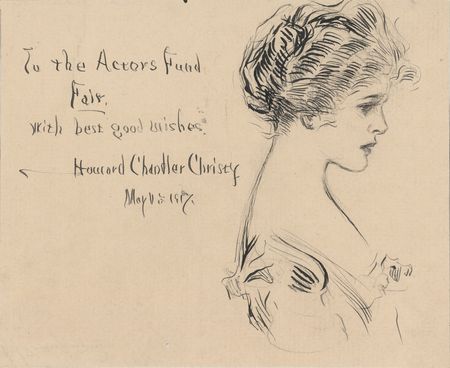 To the Actors Fund
Fair.
With best good wishes.
Howard Chandler Christy
May 1917.